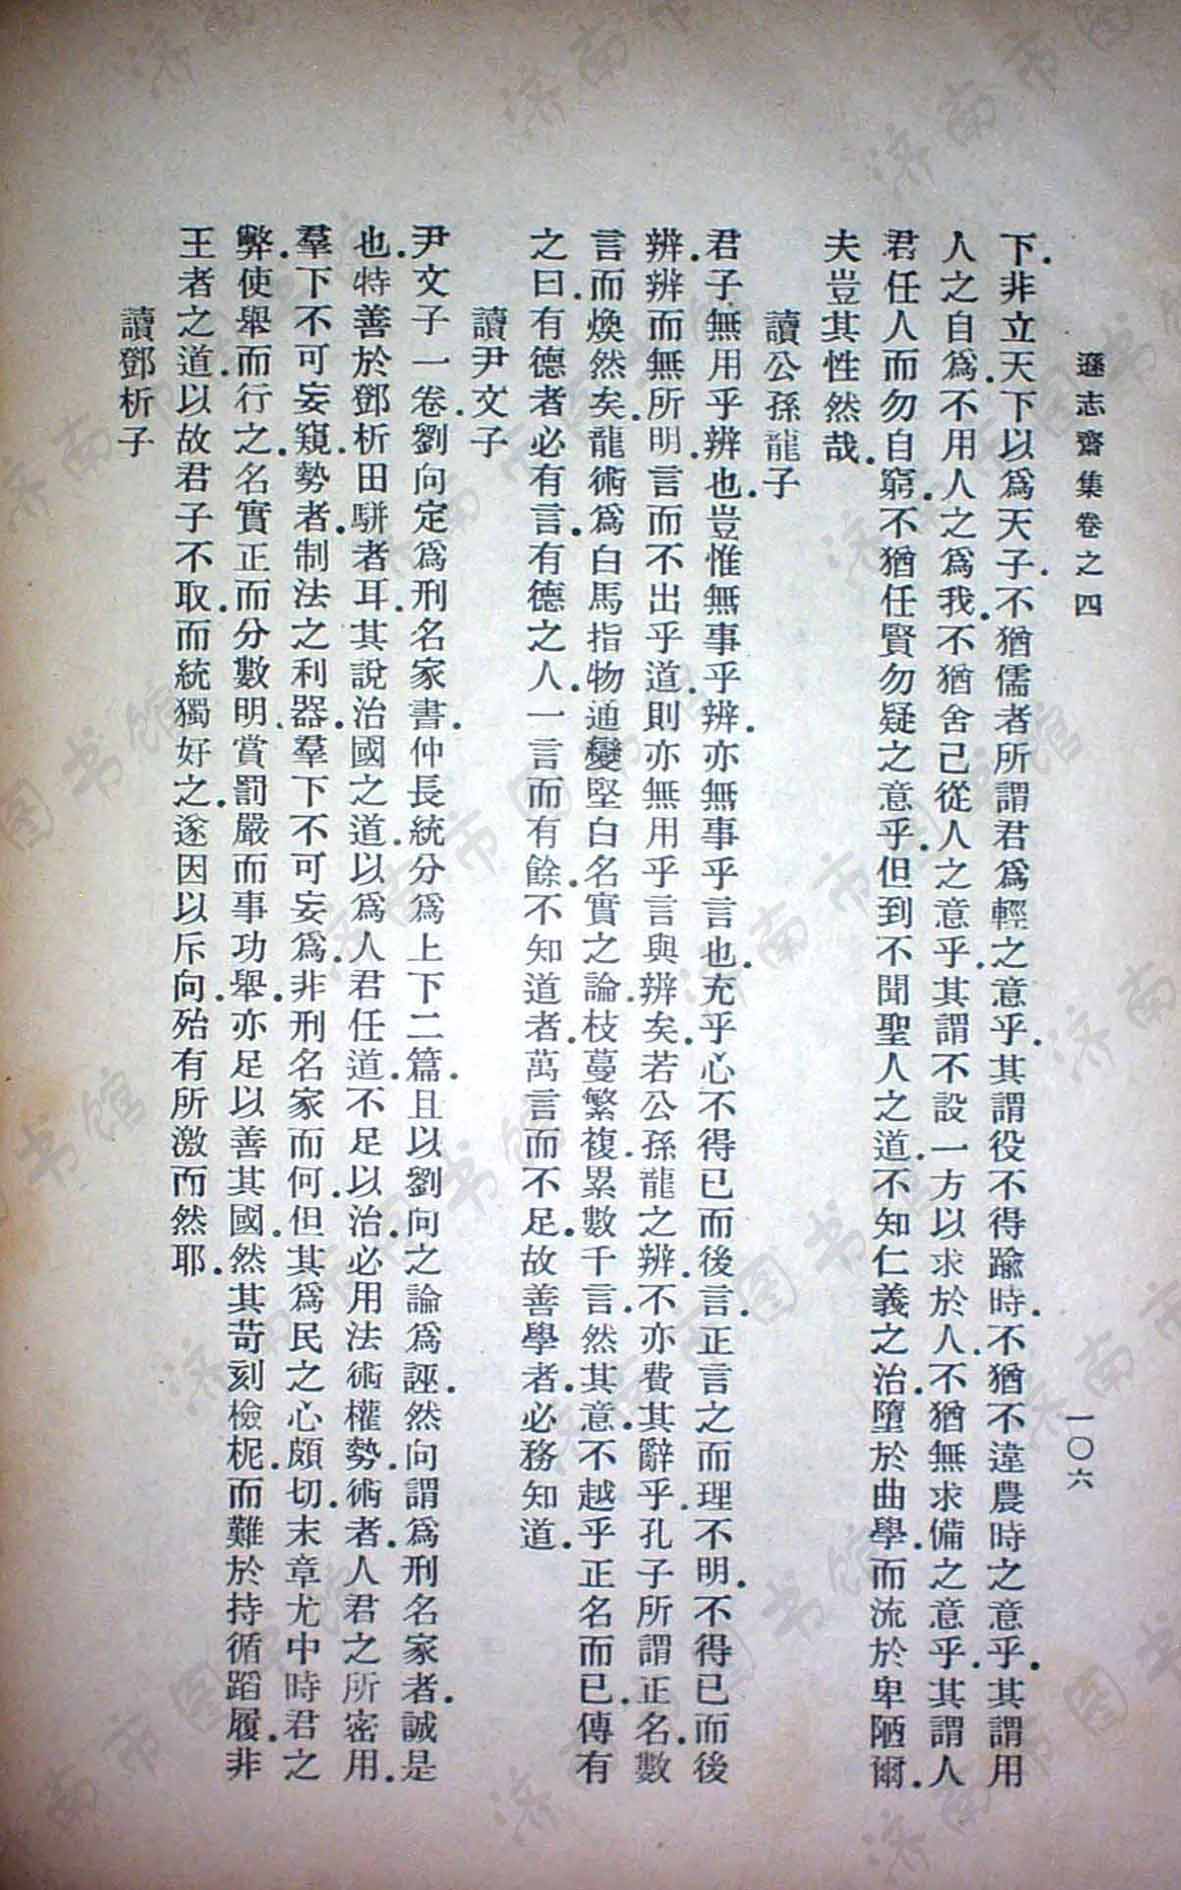 遜志齋集卷之四　一〇六
下.非立天下以爲天子.不猶儒者所謂君爲輕之意乎.其謂役不得踰時.不猶不違農時之意乎.其謂用
人之自爲.不用人之爲我.不猶舍己從人之意乎.其謂不設一方以求於人.不猶無求備之意乎.其謂人
君任人而勿自窮.不猶任賢勿疑之意乎.但到不聞聖人之道.不知仁義之治.墮於曲學.而流於卑陋爾.
夫豈其性然哉.
讀公孫龍子
君子無用乎辨也.豈惟無事乎辨.亦無事乎言也.充乎心不得已而後言.正言之而理不明.不得已而後
辨.辨而無所明.言而不出乎道.則亦無用乎言與辨矣.若公孫龍之辨.不亦費其辭乎.孔子所謂正名.數
言而煥然矣.龍術爲白馬指物通變堅白名實之論.枝蔓繁複.累數千言.然其意不越乎正名而已.傳有
之曰.有德者必有言.有德之人.一言而有餘.不知道者.萬言而不足.故善學者.必務知道.
讀尹文子
尹文子一卷.劉向定爲刑名家書.仲長統分爲上下二篇.且以劉向之論爲誣.然向謂爲刑名家者.誠是
也.特善於鄧析田駢者耳.其說治國之道.以爲人君任道.不足以治.必用法術權勢.術者.人君之所密用.
羣下不可妄窺.勢者.制法之利器.羣下不可妄爲.非刑名家而何.但其爲民之心頗切.末章尤中時君之
弊.使舉而行之.名實正而分數明.賞罰嚴而事功舉.亦足以善其國.然其苛刻檢柅.而難於持循蹈履.非
王者之道.以故君子不取.而統獨好之.遂因以斥向.殆有所激而然耶.
讀鄧析子